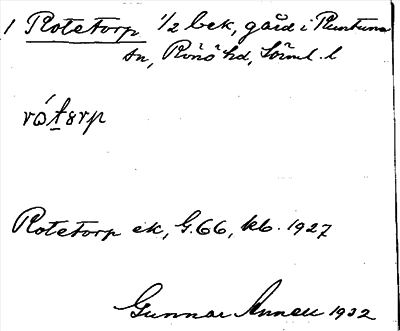 1 Rotetorp 1/2 bek, gård i Runtuna
sn, Rönö hd, Söml. l
rót8rp
Rotetorp ek, G.66, kb. 1927
Gunnar Annell 1932